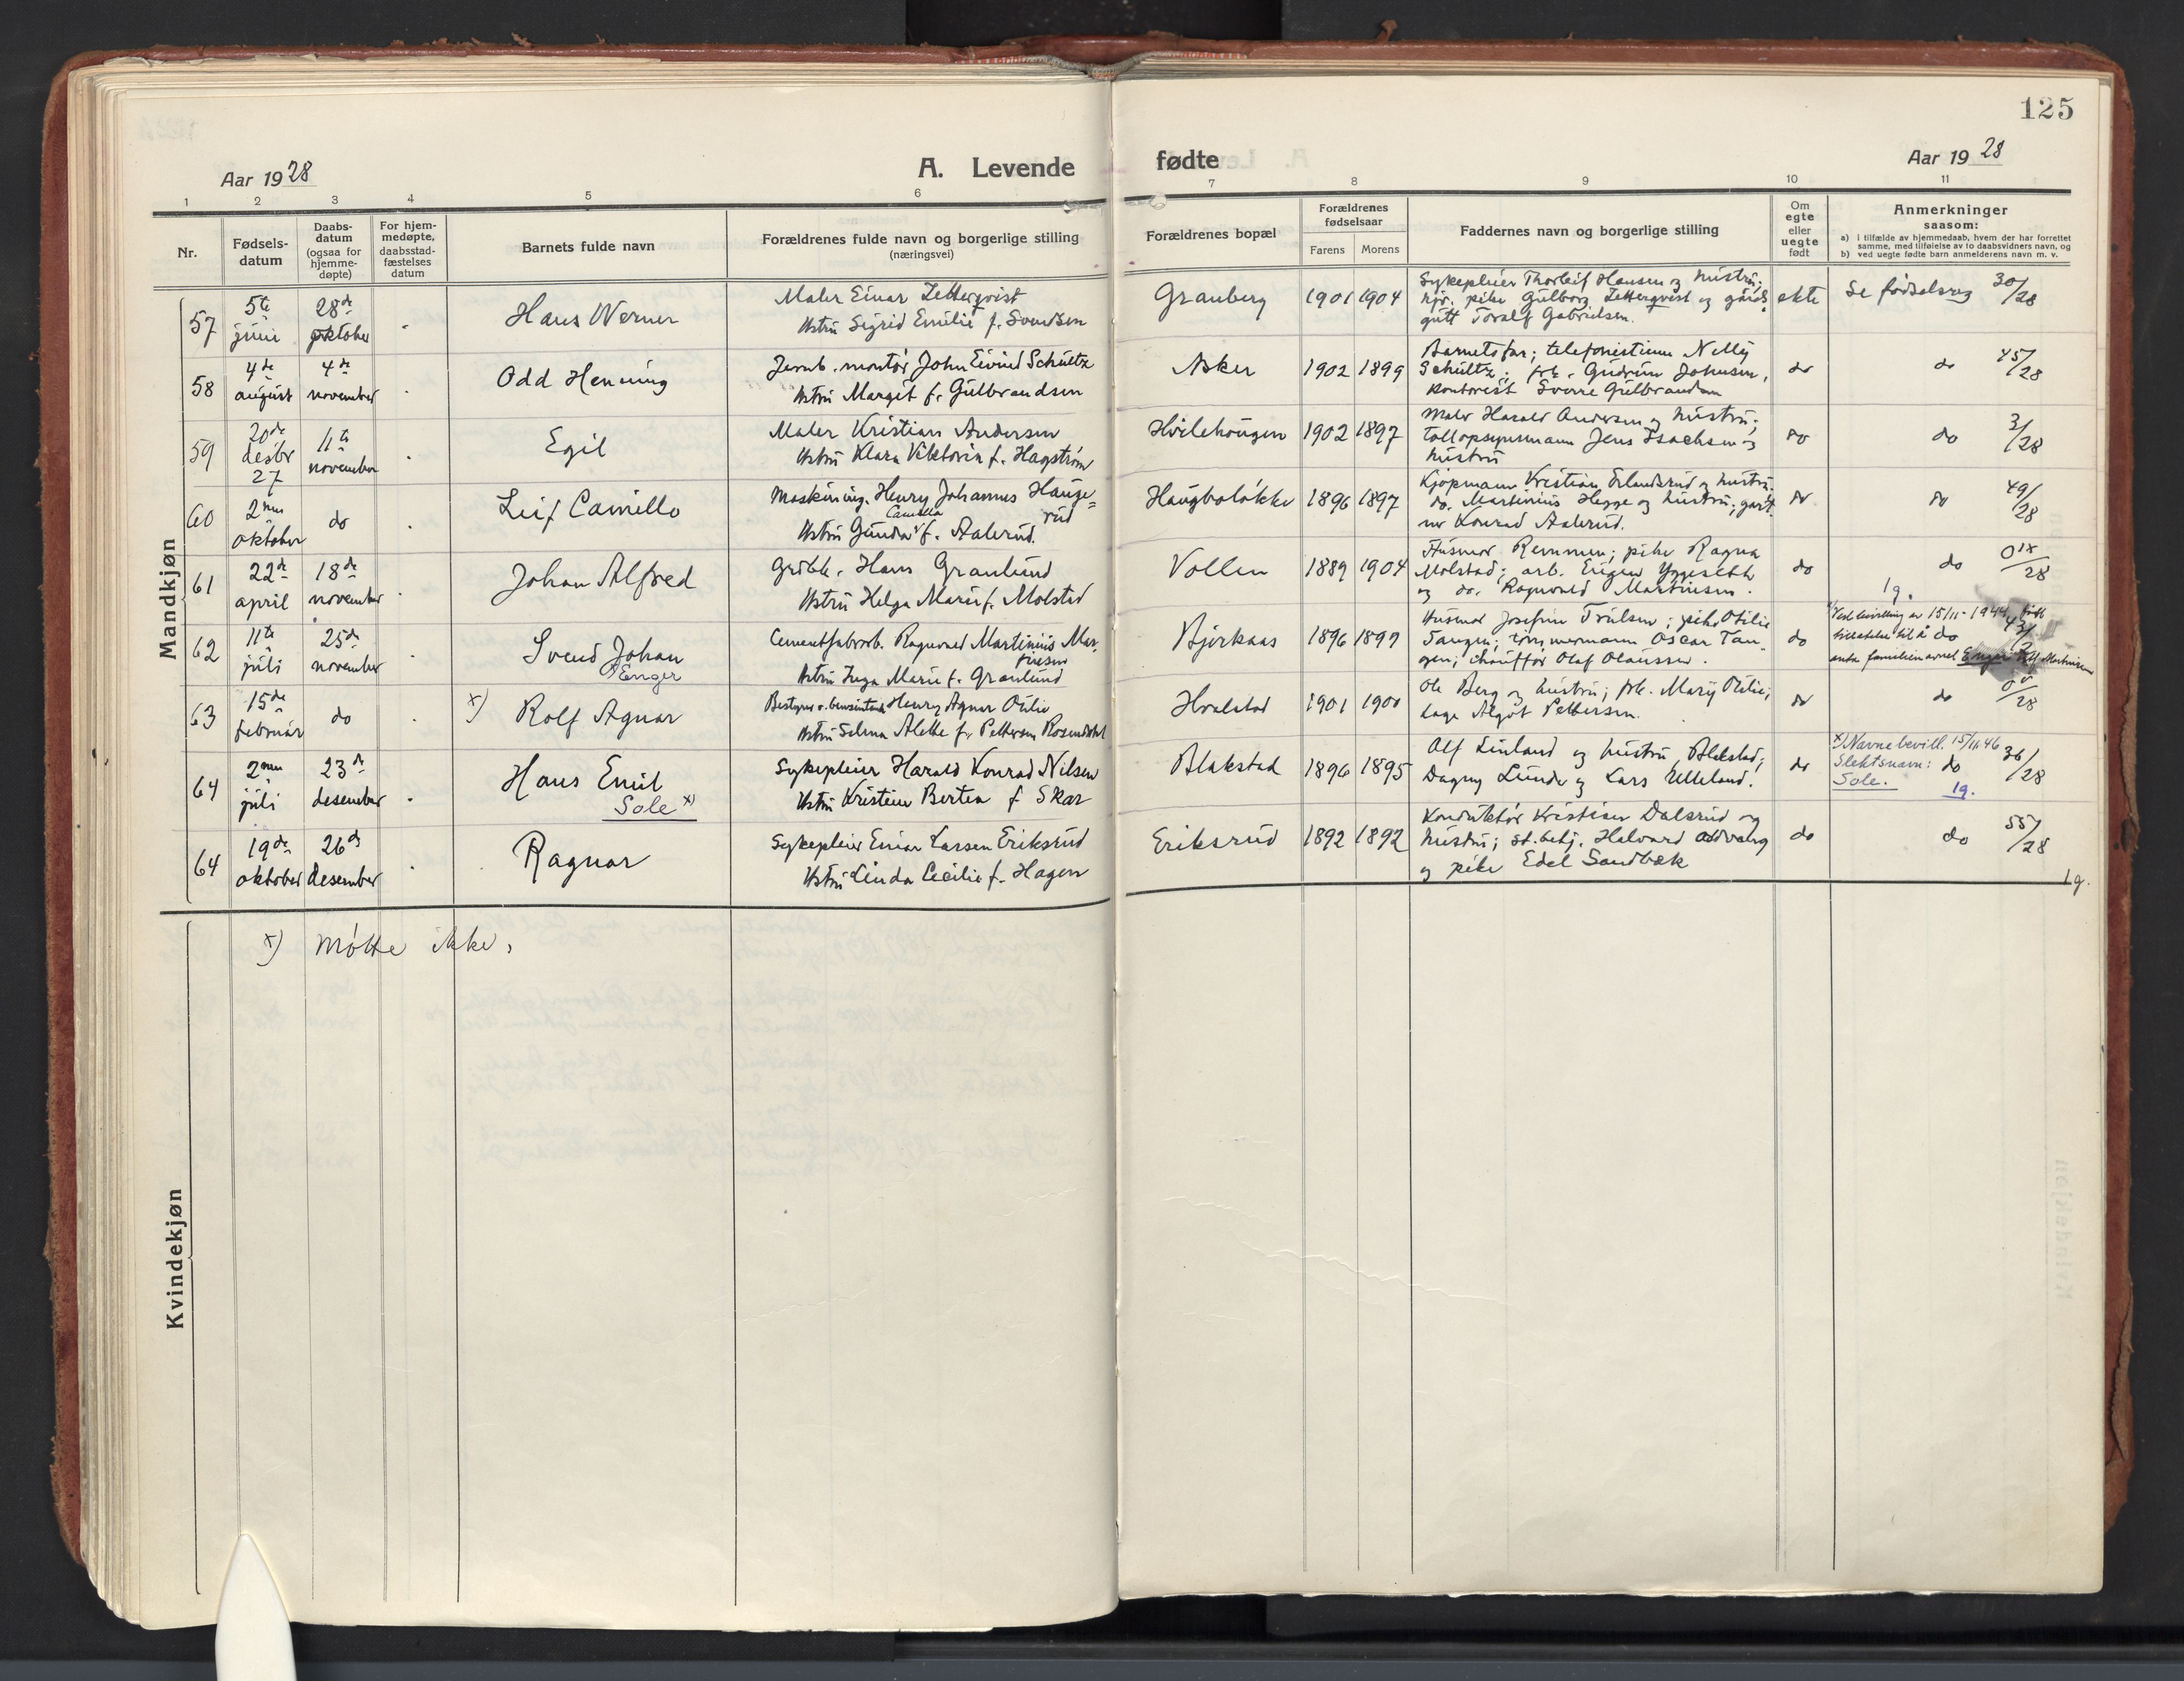 125
Aar 1928
A. Levende fødte
Aar 1928
1 2 3 4 5 6 7 8 9 10 11
Nr.
Fødsels-
datum
Daabs-
datum
(ogsaa for
hjemme-
døpte)
For hjem-
medøpte,
daabsstad-
fæstelses
datum
Barnets fulde navn
Forældrenes fulde navn og borgerlige stilling
(næringsvei)
Forældrenes bopæl
Forældrenes
fødselsaar
Farens Morens
Faddernes navn og borgerlige stilling
Om
egte
eller
uegte
født
Anmerkninger
saasom:
a) i tilfælde av hjemmedaab, hvem der har forrettet
samme, med tilføielse av to daabsvidners navn, og
b) ved uegte fødte barn anmelderens navn m. v.
Mandkjøn
57
5te
juni
28de
oktober
Hans Werner
Maler Einar Zetterqvist
Hstru Sigrid Emilie f. Svendsen
Granberg
1901 1904
Sykepleier Thorleif Hansen og hustru;
pike Gulborg Zetterqvist og gårds
gutt Toralf Gabrielsen.
ekte
Se fødselsreg 30/28
58
4de
august
4de
november
Odd Henning
Jernb. montør John Eivind Schultz
Hstru Margit f. Gulbrandsen
Asker
1902 1899
Barnets far; telefonistinne Nelly
Schultz; frk. Gudrun Johnsen,
kontorist Sverre Gulbrandsen
do
do 45/28
59
20de
desbr
27
11te
november
Egil
Maler Kristian Andersen
Hstru Klara Viktoria f. Hagstrøm
Hvilehaugen
1902 1897
Maler Harald Andersen og hustru;
Tollopsynsmann Jens Isachsen og
hustru
do
do 3/28
60
2nen
oktober
do
Leif Camillo
Maskining. Henry Johannes Hauge=
rud
Camilla
Hstru Gunda f. Aalerud.
Haugboløkke
1896 1897
Kjøpmann Kristian Erlandsrud og hustru.
do. Martinius Hegge og hustru; gart
ner Konrad Aalerud.
do
do 49/28
61
22de
april
18de
november
Johan Alfred
Hans Granlund
Hstru Helga Marie f. Molstad
Vollen
1889 1904
Husmor Remmen; pike Ragna
Molstad; arb. Eugen Yggeseth
og do. Ragnvald Martinsen.
do
do
1g.
62
11te
juli
25de
november
Svend Johan
Enger
Cementfabrarb. Ragnvald Martinius Mar-
tinsen
Hstru Inga Marie f. Granlund
Bjerkaas
1896 1899
Husmor Josefine Trulsen; pike Otilie
Tangen; tømmermann Oscar Tan-
gen; chauffør Olaf Olaussen.
do
Ved bevilling av 15/11-1944 født
tillatelse til å do
anta familienavnet Enger
63
15de
februar
do
x) Rolf Agnar
Bestyrer v. bensintank Henry Agnar Otilie
Hstru Selma Alette f. Pettersen Rosendahl
Hvalstad
1901 1900
Ole Berg og hustru; frk. Mary Otilie;
Lage Algot Pettersen.
do
do
64
2nen
juli
23de
desember
Hans Emil
Sole x)
Sykepleier Harald Konrad Nilsen
Hstru Kristine Bertea f Skar
Blakstad
1896 1895
Alf Linland og hustru, Blakstad;
Dagny Lunde og Lars Ulleland.
do
x) Navnebevill. 15/11.46
Slektsnavn: do 36/28
Sole. 1g.
64
19de
oktober
26de
desember
Ragnar
Sykepleier Einar Larsen Eriksrud
Hstru Linda Cecilie f. Hagen
Eriksrud
1892 1892
Konduktør Kristian Dalsrud og
hustru; st.betj. Halvard Oddvang
og pike Edel Sandbæk
do
do 55/28
1g.
x) Møtte ikke.
Kvindekjøn